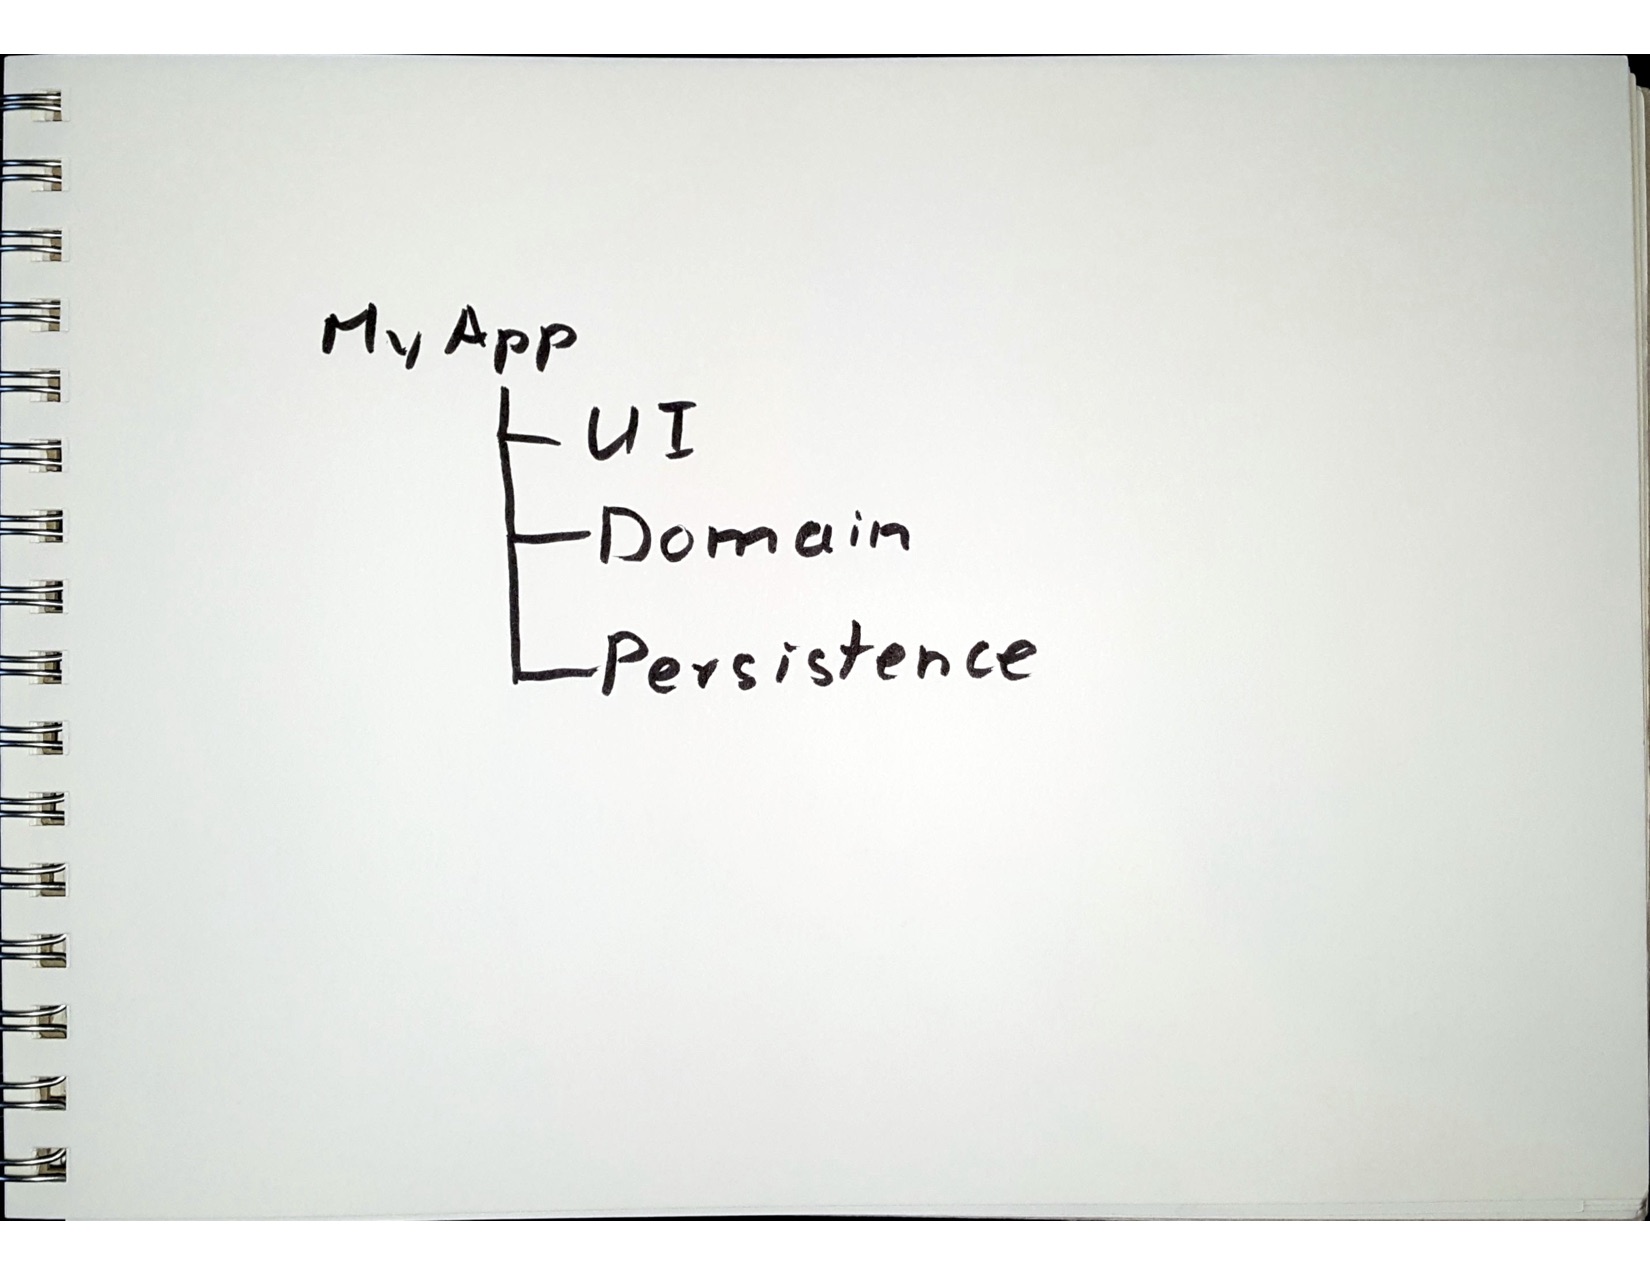 My App
UI
Domain
Persistence